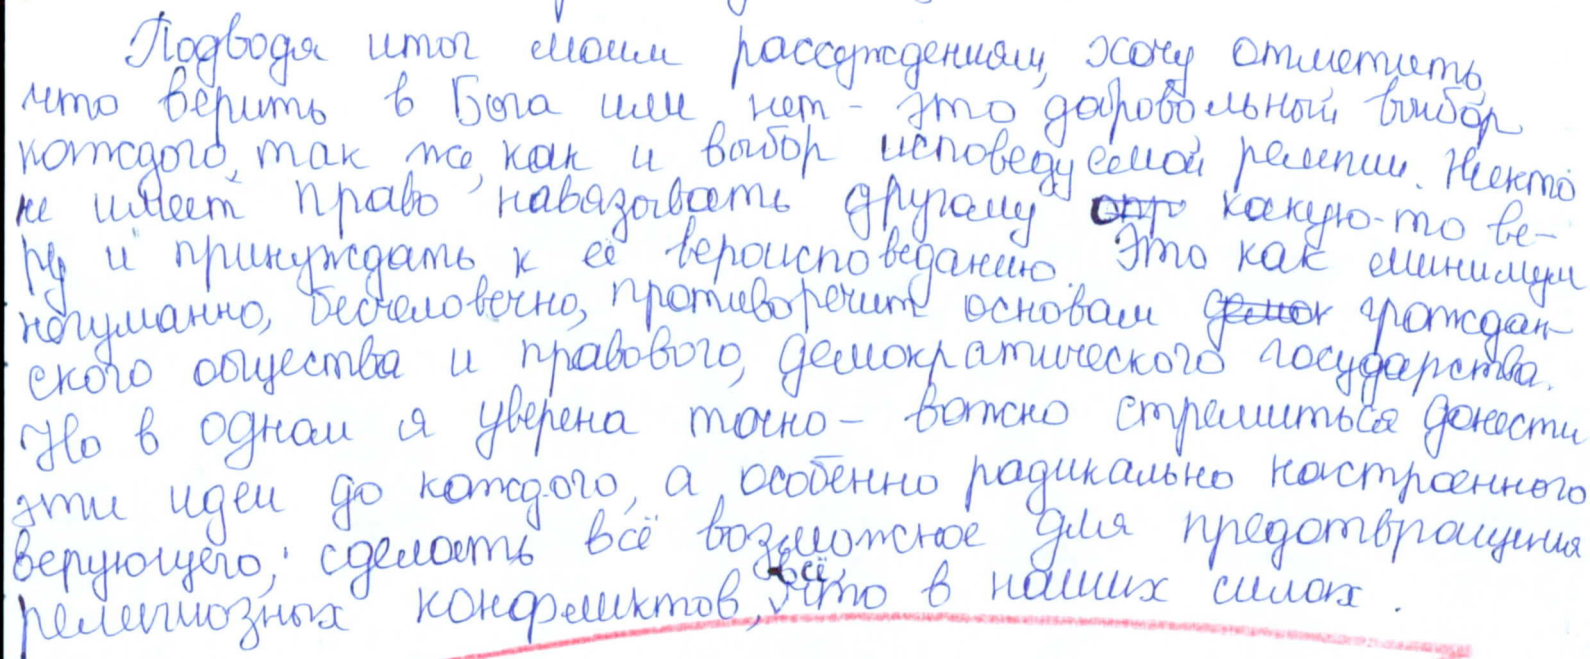 Подводя итог моим рассуждениям, хочу отметить,
что верить в Бога или нет - это добровольный выбор
каждого, так же, как и выбор исповедуемой религии. Никто
не имеет право навязывать другому какую-то ве-
ру и принуждать к её вероисповеданию. Это как минимум
негуманно, бесчеловечно, противоречит основам граждан-
ского общества и правового, демократического государства.
Но в одном я уверена точно – важно стремиться донести
эти идеи до каждого, а особенно радикально настроенного
верующего, сделать всё возможное для предотвращения
религиозных конфликтов, всё, что в наших силах.